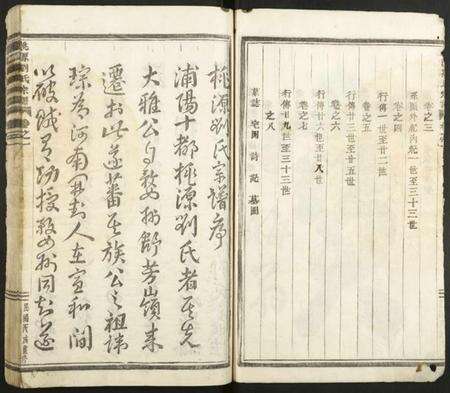 卷之三
系圖外紀內紀一世至三十三世
卷之四
行傳一世至廿二世
卷之五
行傳廿三世至廿五世
卷之六
行傳廿六世至廿八世
卷之七
行傳廿九世至三十三世
卷之八
家誌 宅圖 詩記 墓圖
桃源劉氏宗譜序
浦陽十都桃源劉氏者其先
大雅公自婺州舒芳山嶺來
遷於此遂蕃其族公之祖諱
琮爲河南開封人在宣和間
以破賊有功授婺州同知遂
桃源劉氏宗譜